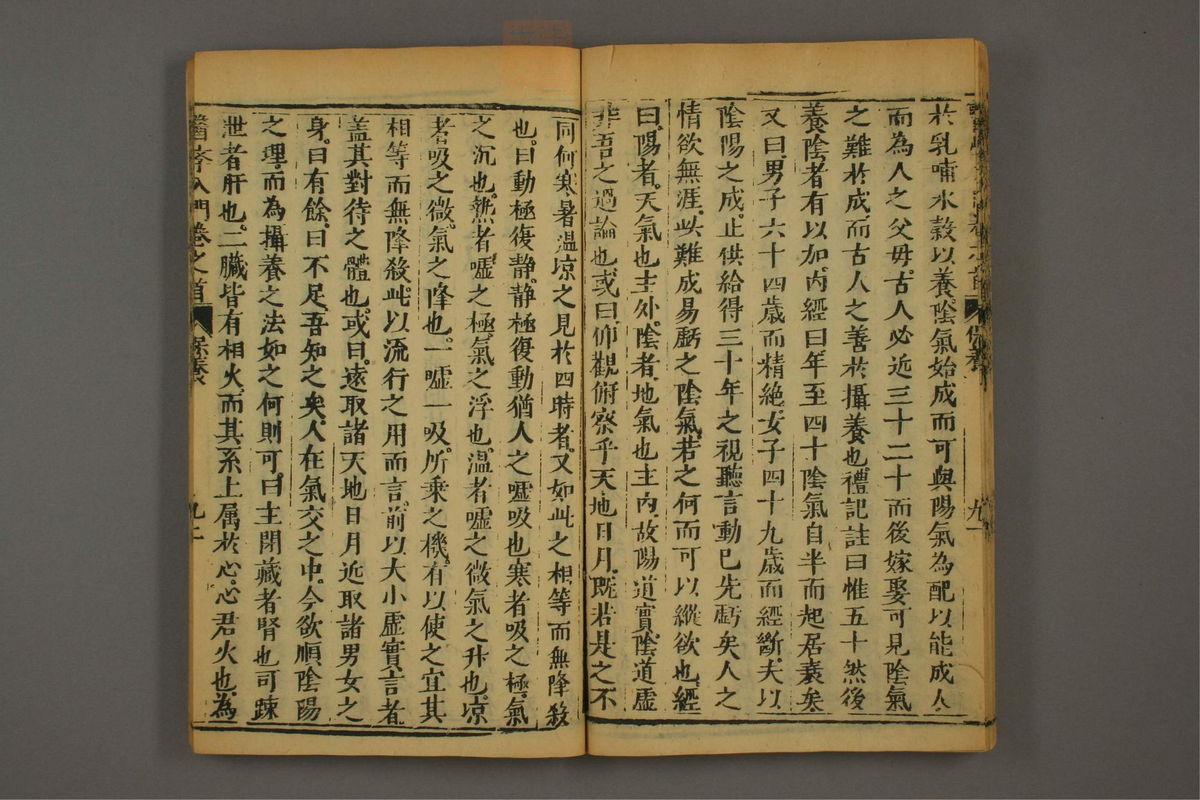 於乳哺水穀以養陰氣始成而可與陽氣為配以能成人
而為人之父毋古人必近三十二十而後嫁娶可見陰氣
之難於成而古人之善於攝養也禮記註曰惟五十然後
養陰者有以加内經曰年至四十陰氣自半而起居衰矣
又曰男子六十四歲而精絶女子四十九歲而經斷夫以
陰陽之成止供給得三十年之視聽言動已先虧矣人之
情欲無涯此難成易虧之陰氣若之何而可以縱欲也經
曰陽者天氣也主外陰者地氣也主内故陽道實陰道虚
非吾之過論也或曰仰觀俯察乎天地日月既若是之不
保養
九一
同何寒暑温凉之見於四時者又如此之相等而無降殺
也曰動極復静静極復動猶人之嘘吸也寒者吸之極氣
之沉也熱者嘘之極氣之浮也温者嘘之微氣之升也凉
者吸之微氣之降也一嘘一吸所乗之機有以使之宜其
相等而無降殺此以流行之用而言前以大小虚實言者
盖其對待之體也或曰遠取諸天地日月近取諸男女之
身曰有餘曰不足吾知之矣人在氣交之中今欲順陰陽
之理而為攝養之法如之何則可曰主閉藏者腎也可踈
泄者肝也二臟皆有相火而其系上属於心心君火也為
醫學入門卷之首
保養
九二